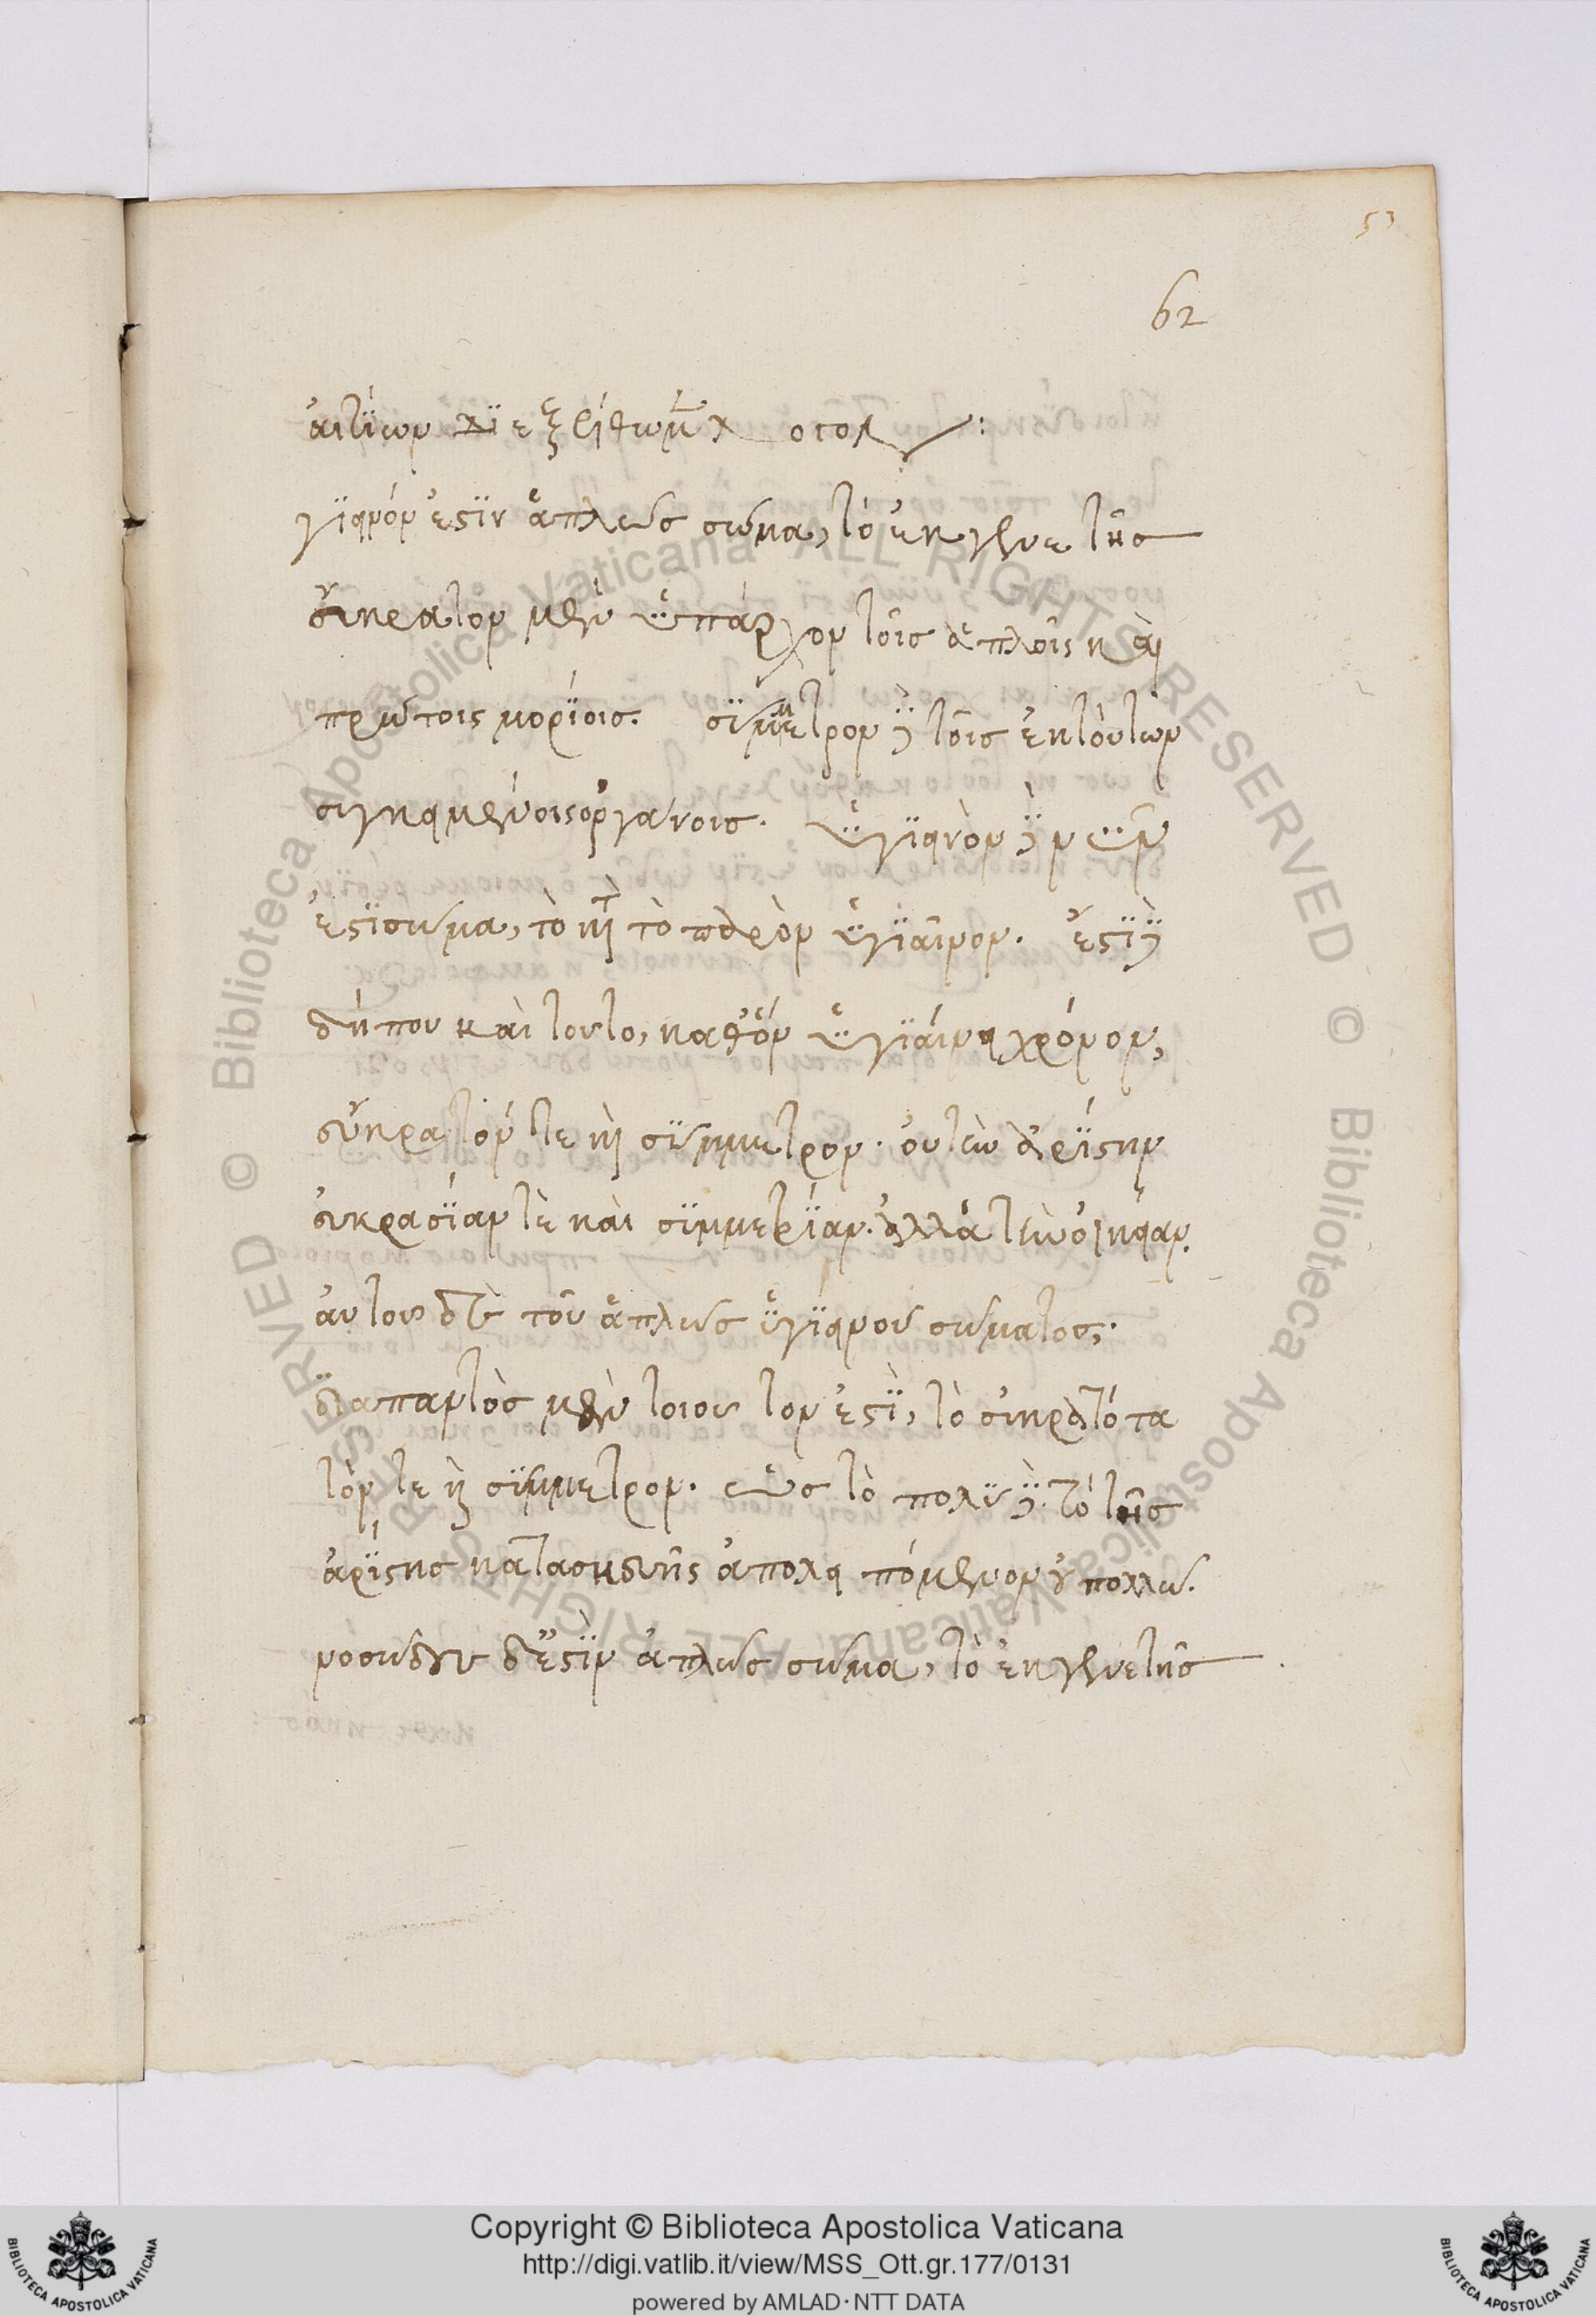 53
62
ἀιτίων
γιεινόν ἐστιν ἁπλῶς σῶμα, τὸ ἐκ γενετῆς
ἔυκρατον μὲν ὑπάρχον τοῖς ἁπλοῖς καὶ
πρώτοις μορίοις. σύμμετρον δὲ τοῖς ἐκ τούτων
συγκειμένοις ὀργάνοις. ὑγιεινὸν δὲ νῦν
ἐστι σῶμα, τὸ κατὰ τὸ παρὸν ὑγιαῖνον. ἔστι δὲ
δήπου καὶ τοῦτο, καθ' ὃν ὑγιαίνει χρόνον,
ἔυκρατόν τε καὶ σύμμετρον. οὐ τὴν ἀρίστην
ἐυκρασίαν τὲ καὶ συμμετρίαν. ἀλλὰ τὴν ὀικείαν.
ἀυτοῦ δὲ τοῦ ἁπλῶς ὑγιεινοῦ σώματος,
διαπαντὸς μὲν τοιοῦτον ἐστὶ, τὸ ἐυκρατότα
τόν τε καὶ σύμμετρον. ὡς τὸ πολὺ δὲ τὸ τῆς
ἀρίστης κατασκευῆς ἀπολειπόμενον οὐ πολλῶ.
νοσῶδες δ' ἐστὶν ἁπλῶς σῶμα, τὸ ἐκ γενετῆς
© Biblioteca Apostolica Vaticana ALL RIGHTS RESERVED © Biblioteca Apostolica Vaticana ALL RIGHTS RESERVED
Copyright © Biblioteca Apostolica Vaticana
http://digi.vatlib.it/view/MSS_Ott.gr.177/0131
powered by AMLAD·NTT DATA
BIBLIOTECA APOSTOLICA VATICANA
BIBLIOTECA APOSTOLICA VATICANA